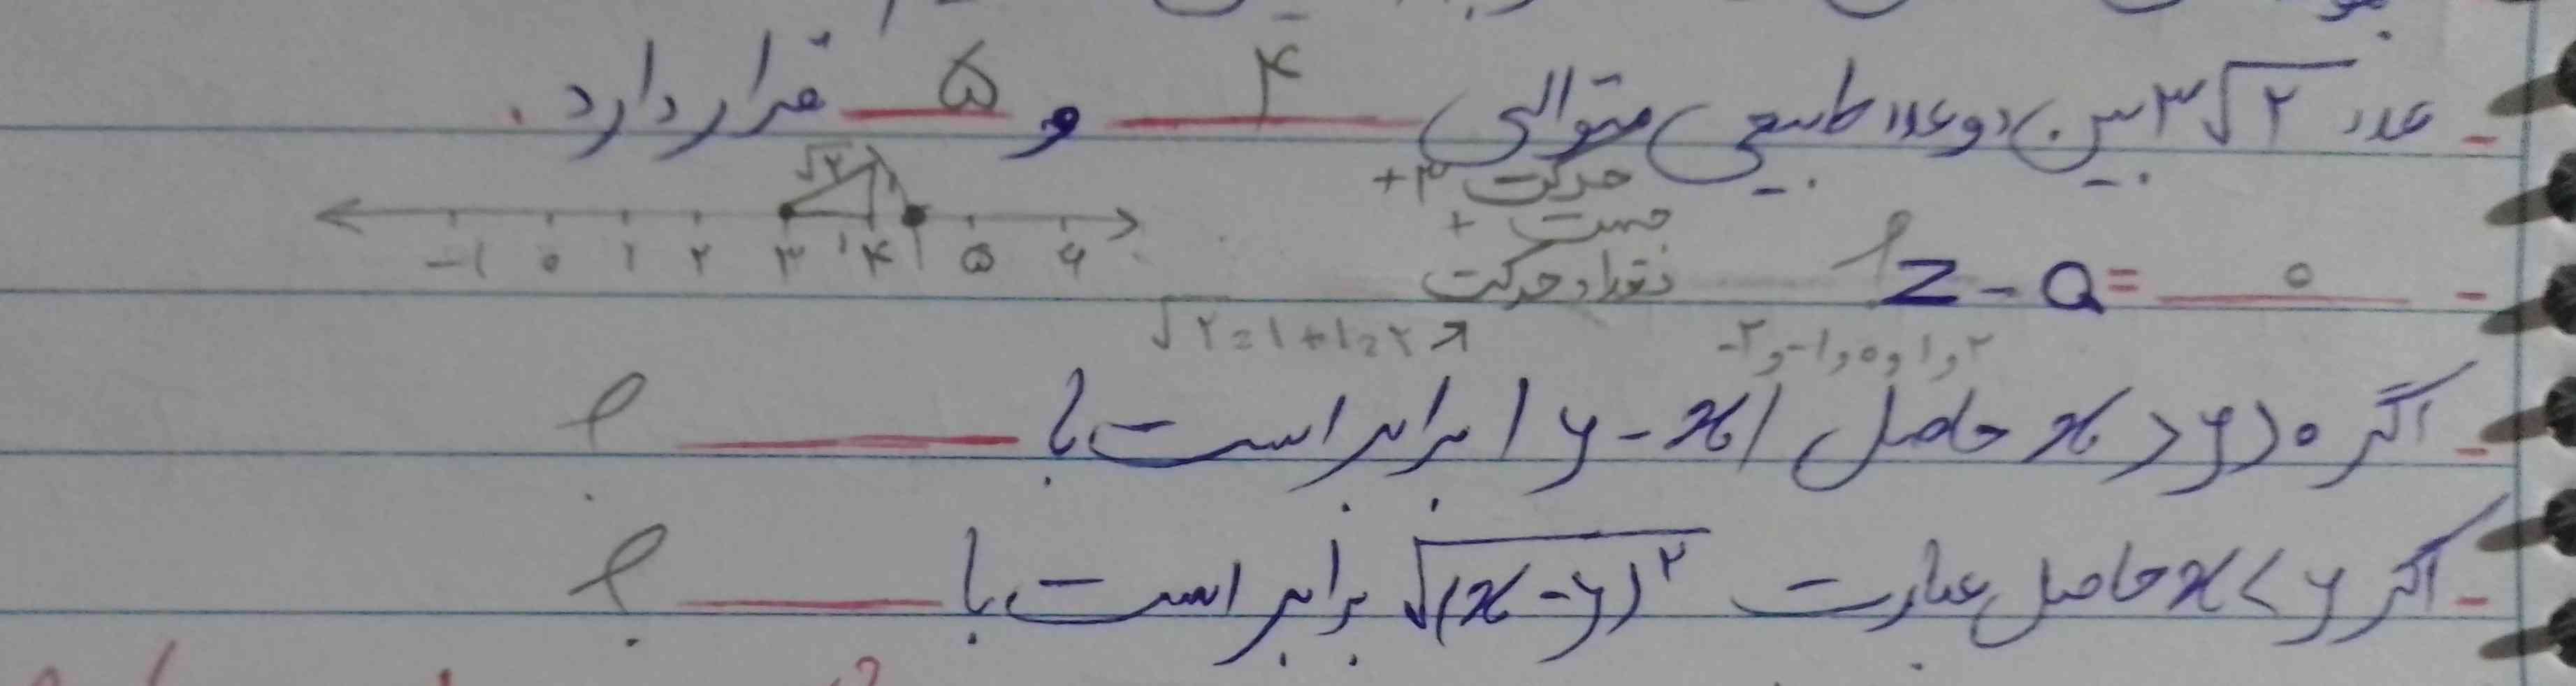 - عدد ۳√۲ بین دو عدد طبیعی متوالی ۴ و ۵ قرار دارد.
حرکت ۳+
√۲
جهت +
-۱ ۰ ۱ ۲ ۳ ۱ ۴ ۵ ۶
- Z - Q = ۰ ؟
مقدار حرکت
√۲ = ۱ + ۱ = ۲
-۲, -۱, ۰, ۱, ۲
- اگر x > y > ۰ حاصل |y - x| برابر است با ؟
- اگر x < y حاصل عبارت √(x - y)۲ برابر است با ؟